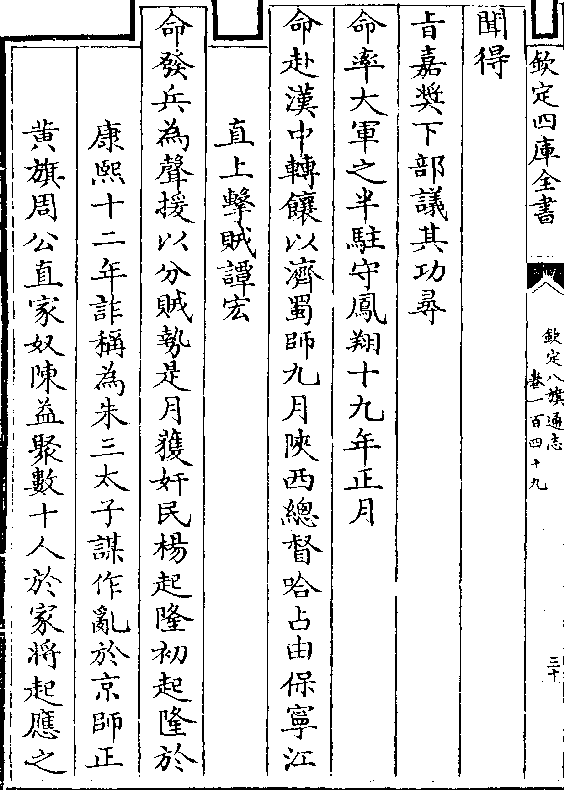 欽定四庫全書
欽定八旗通志
卷一百四十九
三十
聞得
旨嘉奬下部議其功尋
命率大軍之半駐守鳳翔十九年正月
命赴漢中轉饟以濟蜀師九月陝西總督哈占由保寧江
直上擊賊譚宏
命發兵為聲援以分賊勢是月獲奸民楊起隆初起隆於
康熙十二年詐稱為朱三太子謀作亂於京師正
黄旗周公直家奴陳益聚數十人於家將起應之